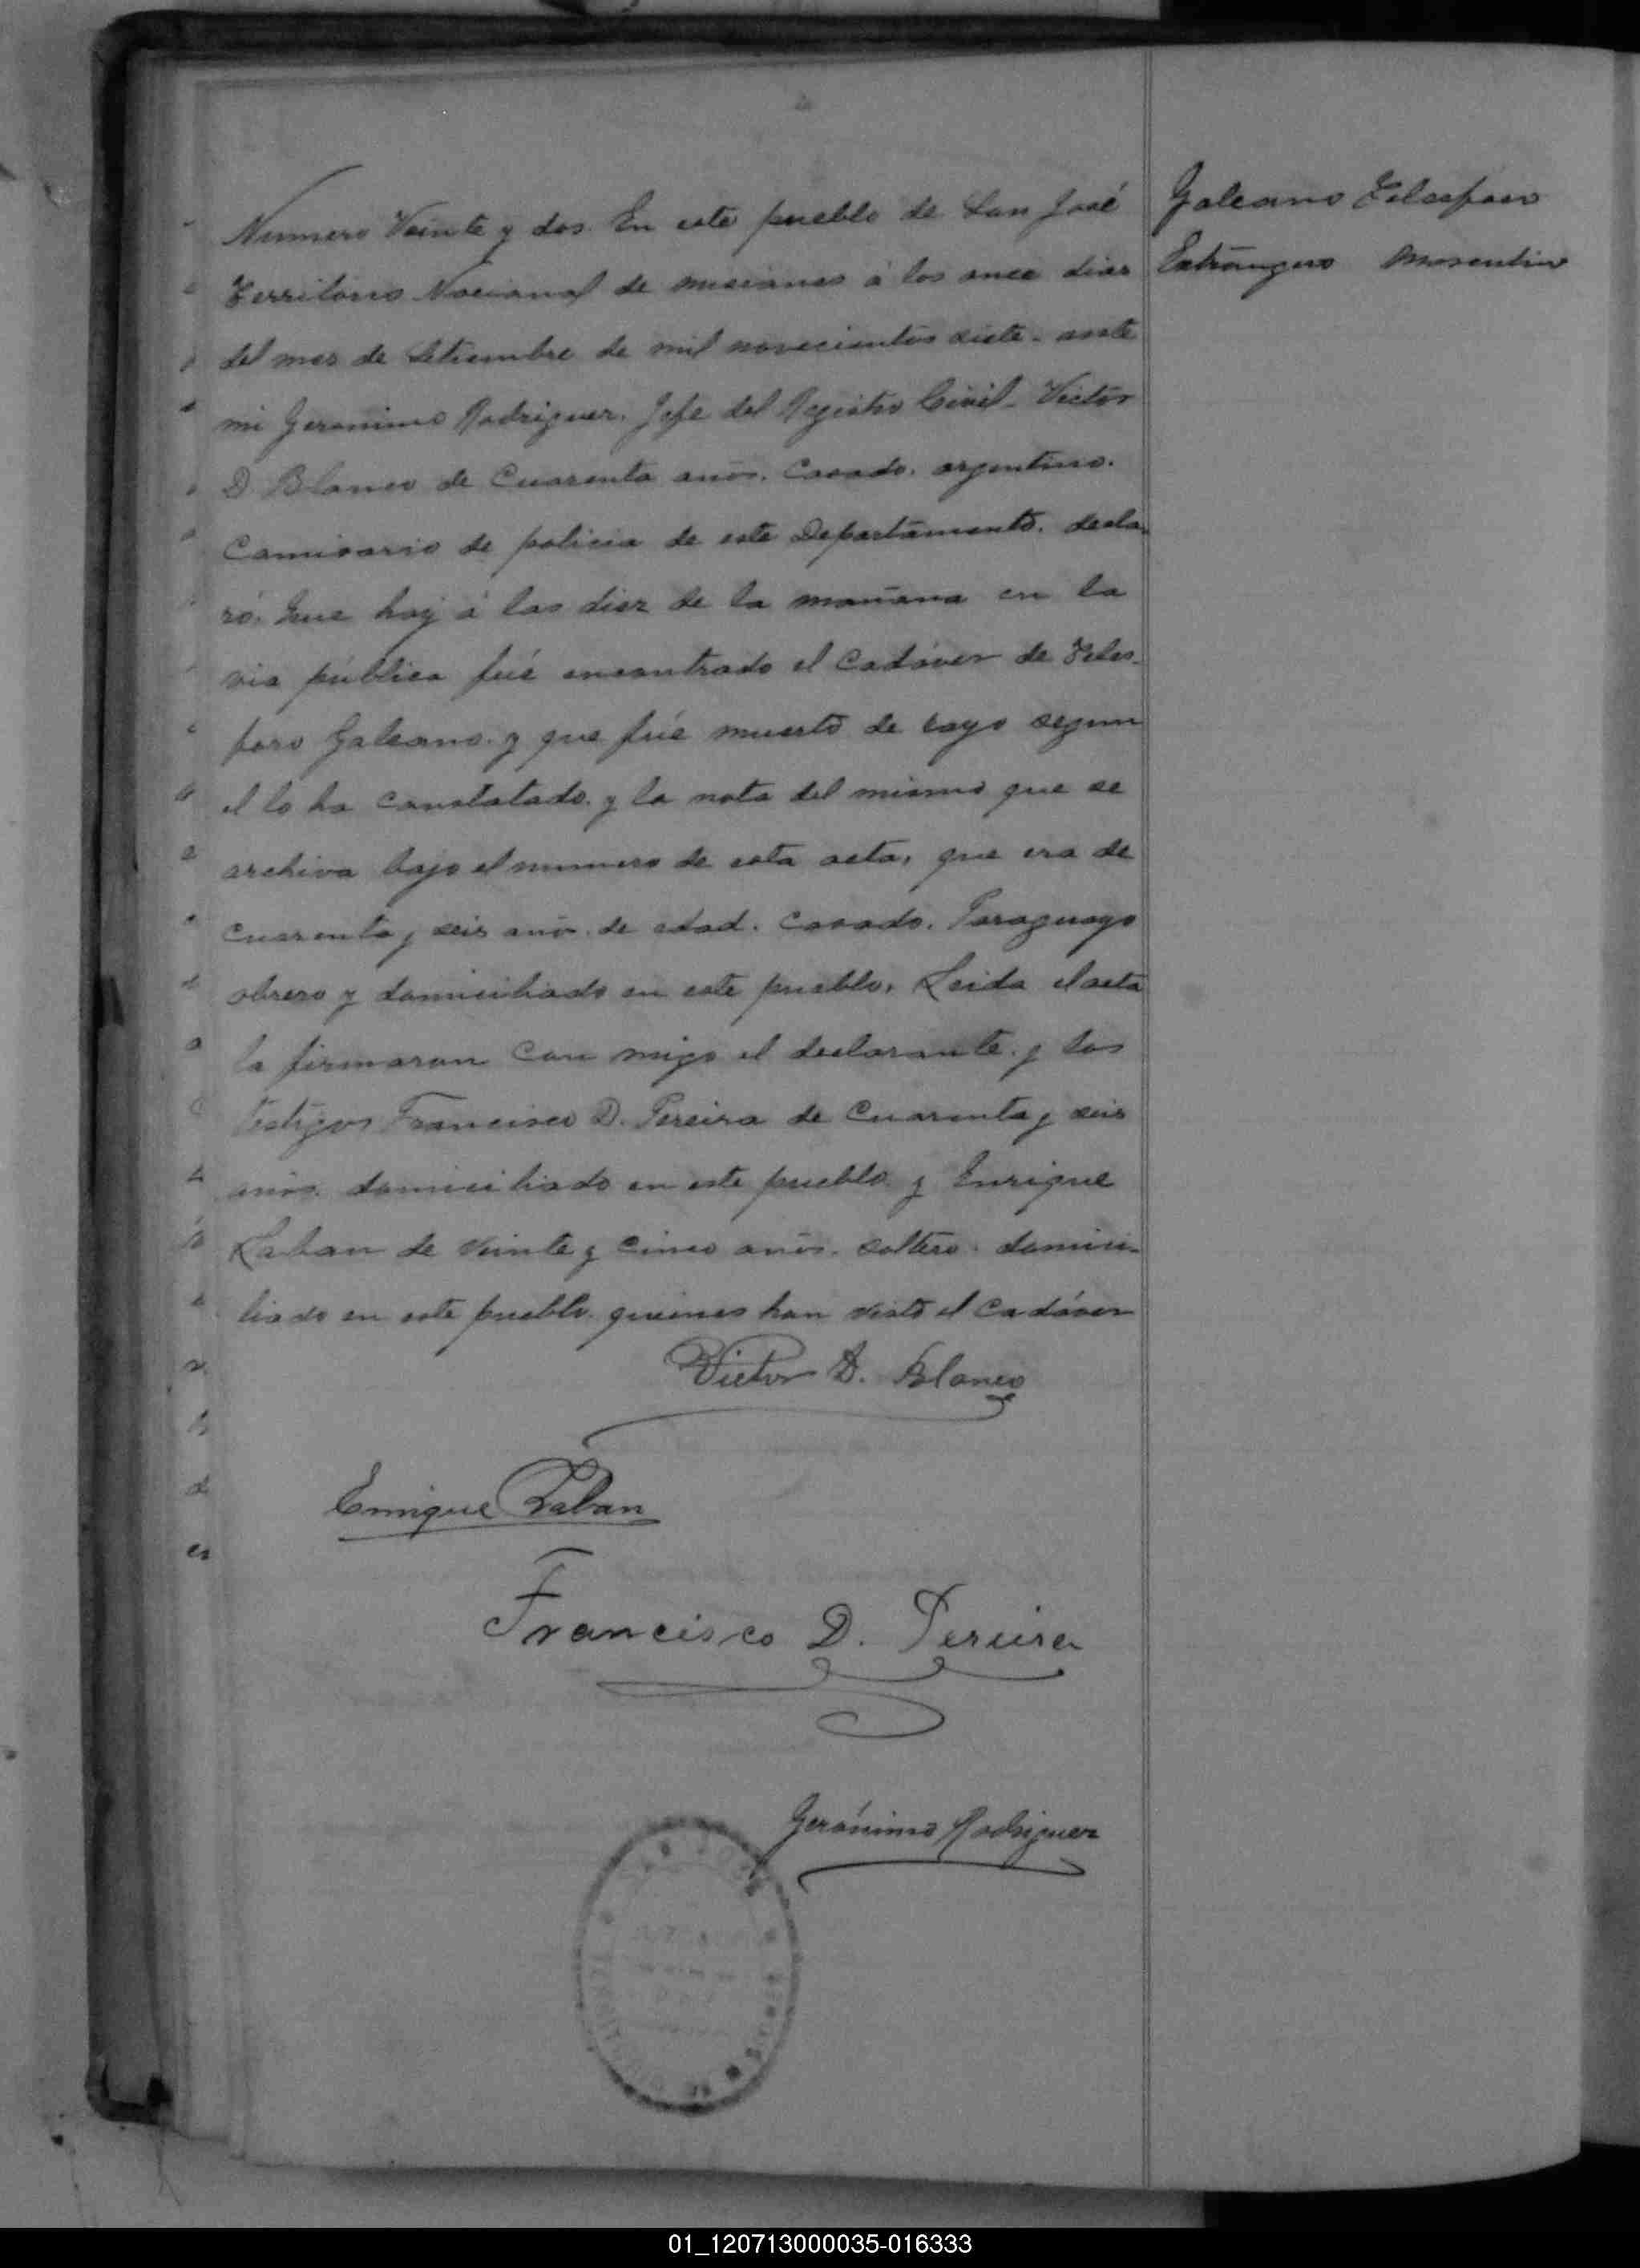 Galeano Telesforo
Extrangero Masculino
Numero Veinte y dos. En este pueblo de San José
Territorio Nacional de misiones á los once dias
del mes de Setiembre de mil novecientos siete. ante
mi Geronimo Rodriguez. Jefe del Registro Civil. Victor
D Blanco de Cuarenta años. Casado. argentino.
Comisario de policia de este Departamento. decla-
ró. Que hoy á las diez de la mañana en la
via pública fué encontrado el Cadáver de Teles-
foro Galeano. y que fué muerto de rayo segun
el lo ha constatado. y la nota del mismo que se
archiva bajo el numero de esta acta, que era de
cuarenta y seis años de edad. Casado. Paraguayo
obrero y domiciliado en este pueblo. Leida el acta
la firmaron con migo el declarante. y los
testigos Francisco D. Pereira de Cuarenta y seis
años. domiciliado en este pueblo. y Enrique
Laban de veinte y cinco años. soltero. domici-
liado en este pueblo. quienes han visto el Cadáver
Victor D. Blanco
Enrique Laban
Francisco D. Pereira
Gerónimo Rodriguez
SAN JOSE
01_120713000035-016333